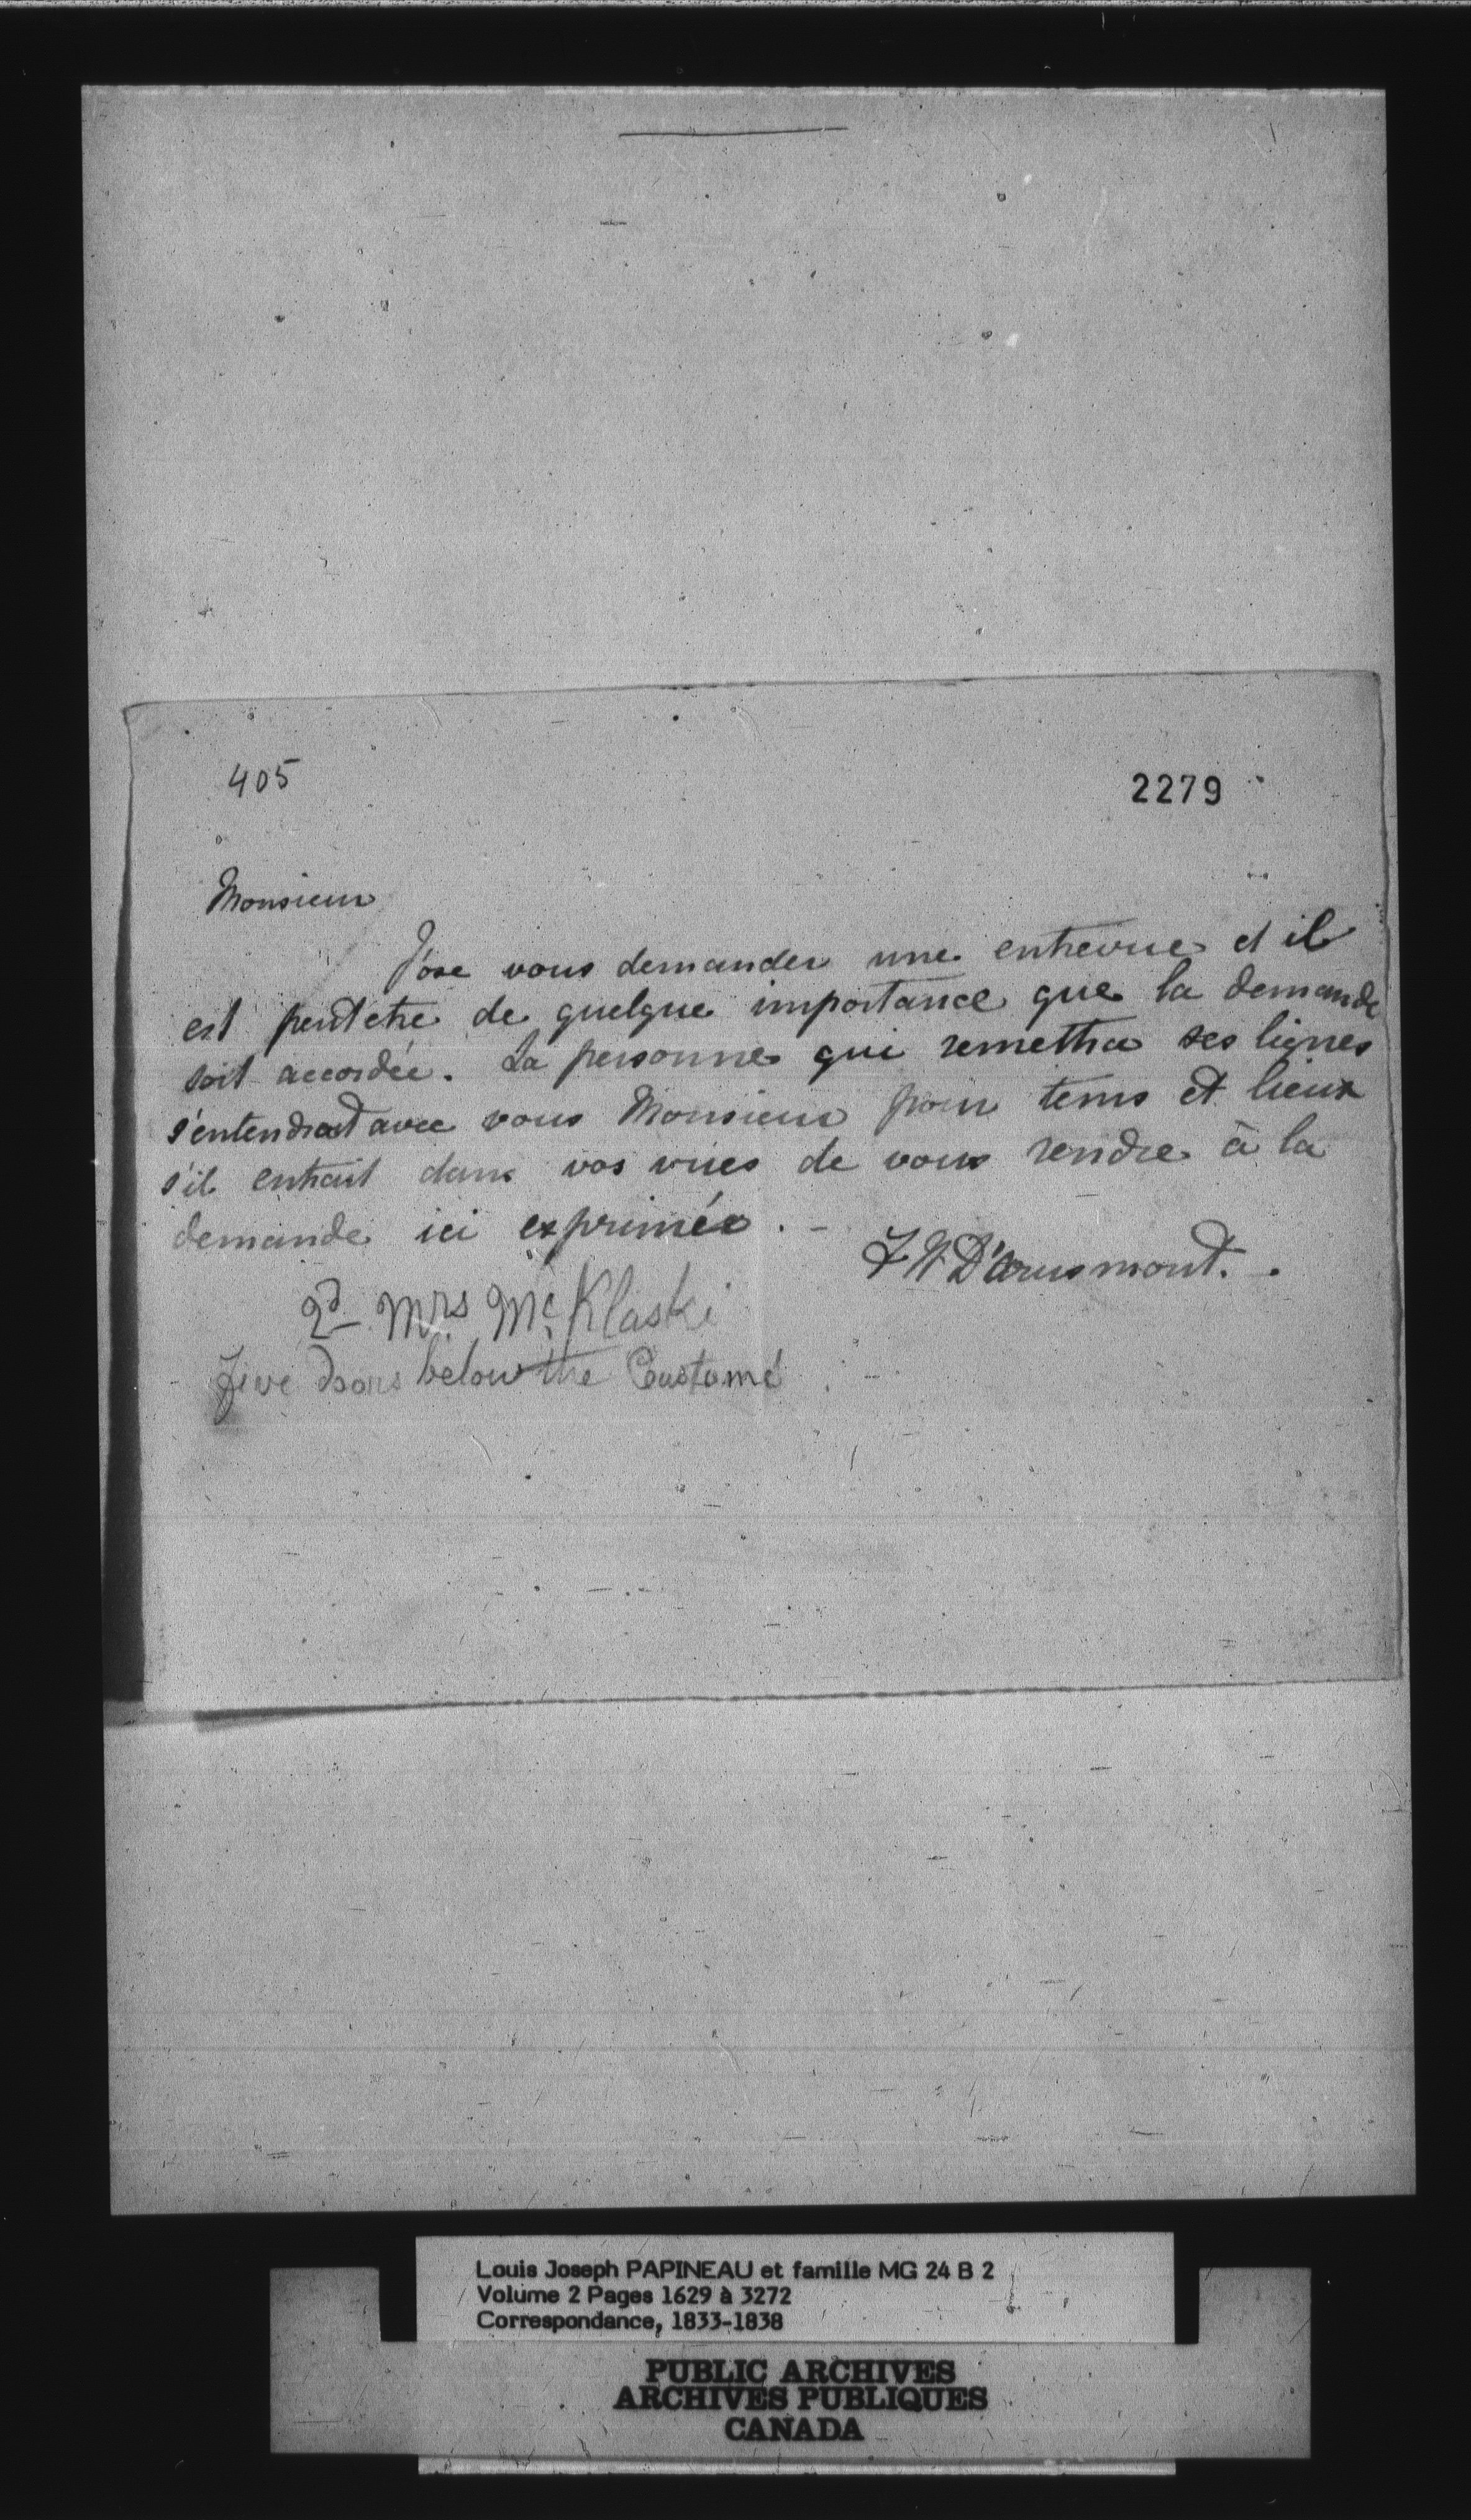 405
2279
Monsieur
J'ose vous demander une entrevue et il
est peutetre de quelque importance que la demande
soit accordée. La personne qui remettra ses lignes
s'entendrat avec vous Monsieur pour tems et lieux
s'il entrait dans vos vues de vous rendre à la
demande ici exprimée. -
F W D'arusmont.
2d Mrs McKlaski
five doors below the Custome
Louis Joseph PAPINEAU et famille MG 24 B 2
Volume 2 Pages 1629 à 3272
Correspondance, 1833-1838
PUBLIC ARCHIVES
ARCHIVES PUBLIQUES
CANADA